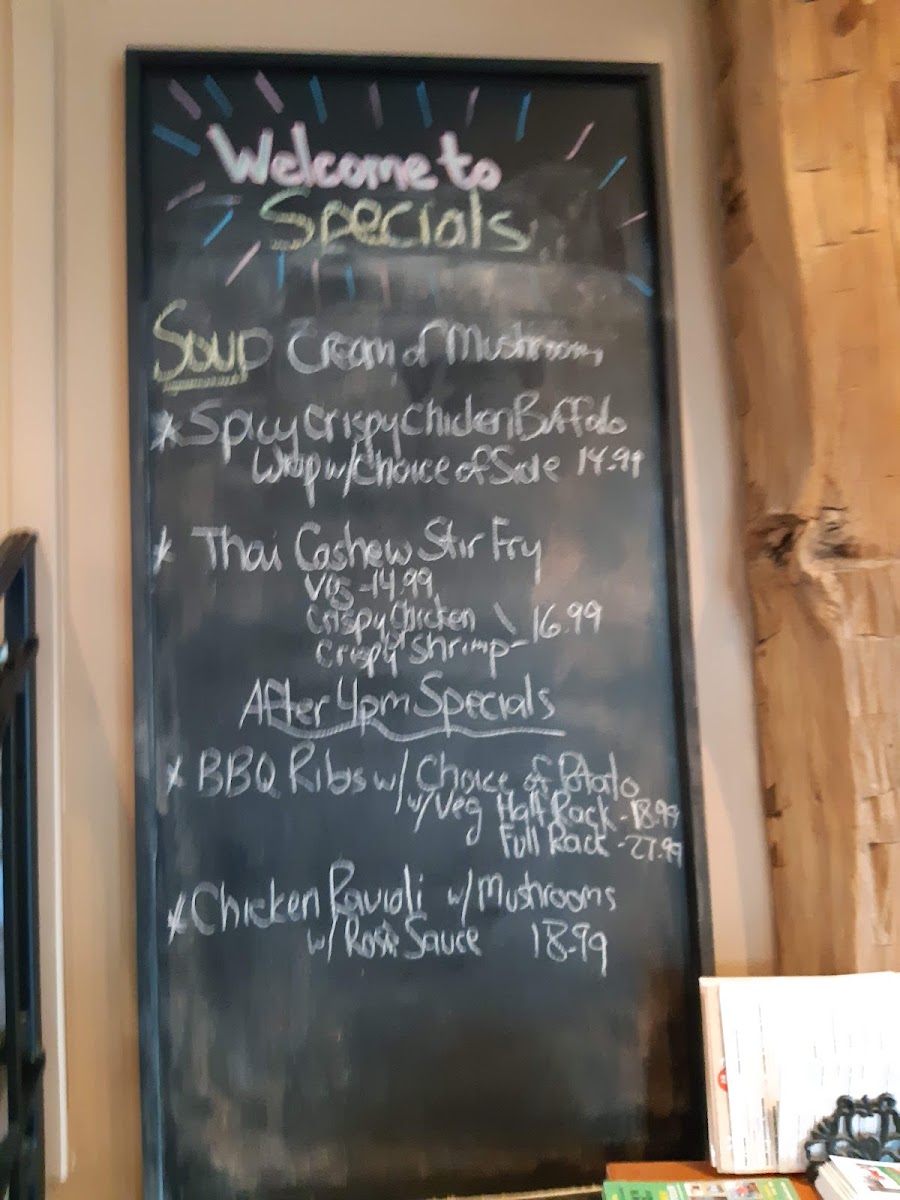 Welcome to
Specials
Soup Cream of Mushroom
* Spicy Crispy Chicken Buffalo
Wrap w/ Choice of Side 14.99
* Thai Cashew Stir Fry
Veg - 14.99
Crispy Chicken \ 16.99
Crispy Shrimp -
After 4pm Specials
* BBQ Ribs w/ Choice of Potato
w/ Veg Half Rack - 18.99
Full Rack - 27.99
* Chicken Ravioli w/ Mushrooms
w/ Rosé Sauce 18.99